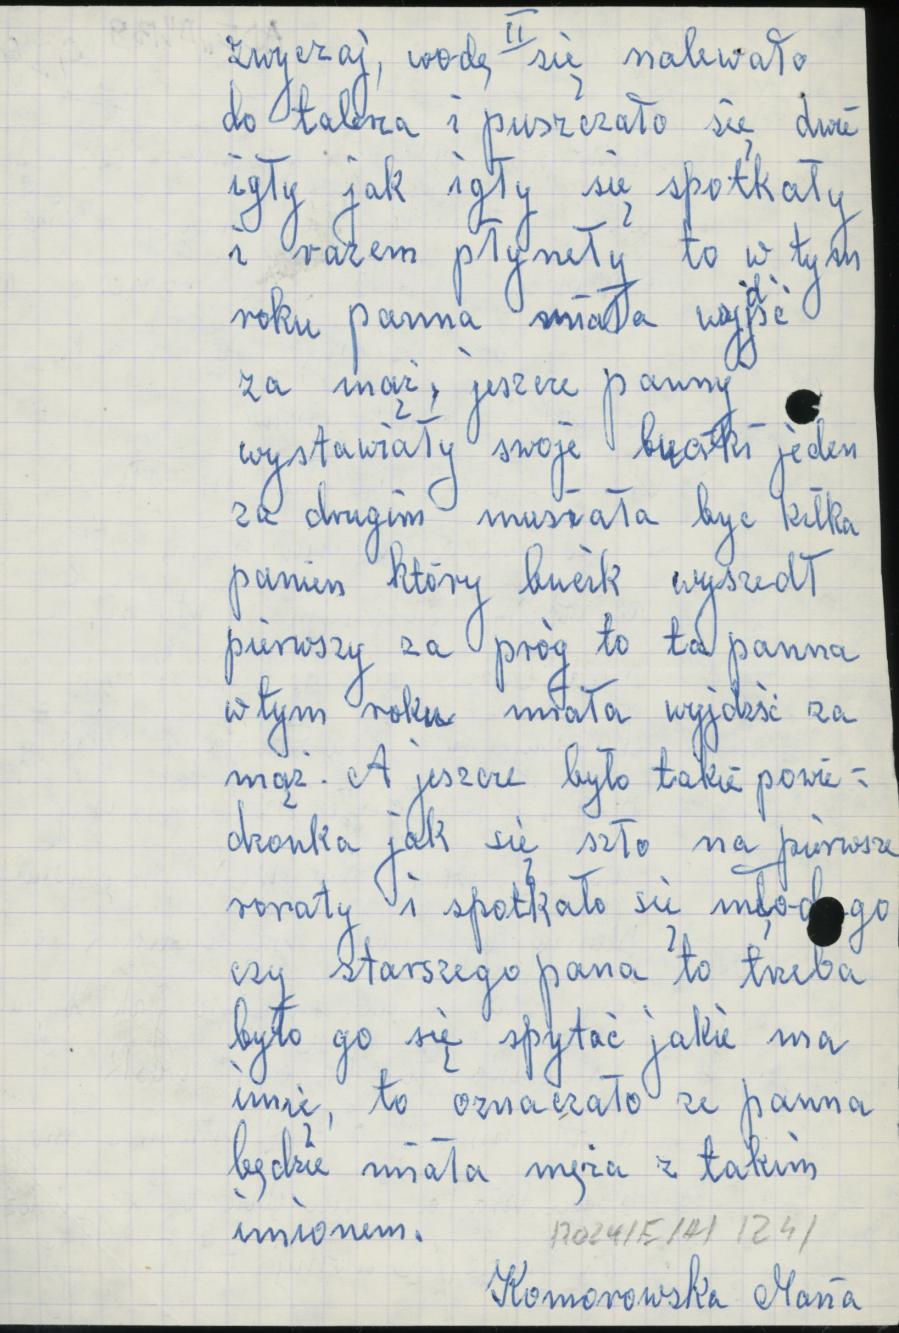 II
zwyczaj, wodę się nalewało
do talerza i puszczało się dwie
igły jak igły się spotkały
i razem płyneły to w tym
roku panna miała wyjdść
za mąż, jeszcze panny
wystawiały swoje buciki jeden
za drugim musiała byc kilka
panien który bucik wyszedł
pierwszy za próg to ta panna
w tym roku miała wyjdść za
mąż. A jeszcze było takie powie-
dzonka jak się szło na pierwsze
roraty i spotkało się młodego
czy starszego pana to trzeba
było go się spytać jakie ma
imię, to oznaczało ze panna
będzie miała męża z takim
imionem.
Komorowska Maria